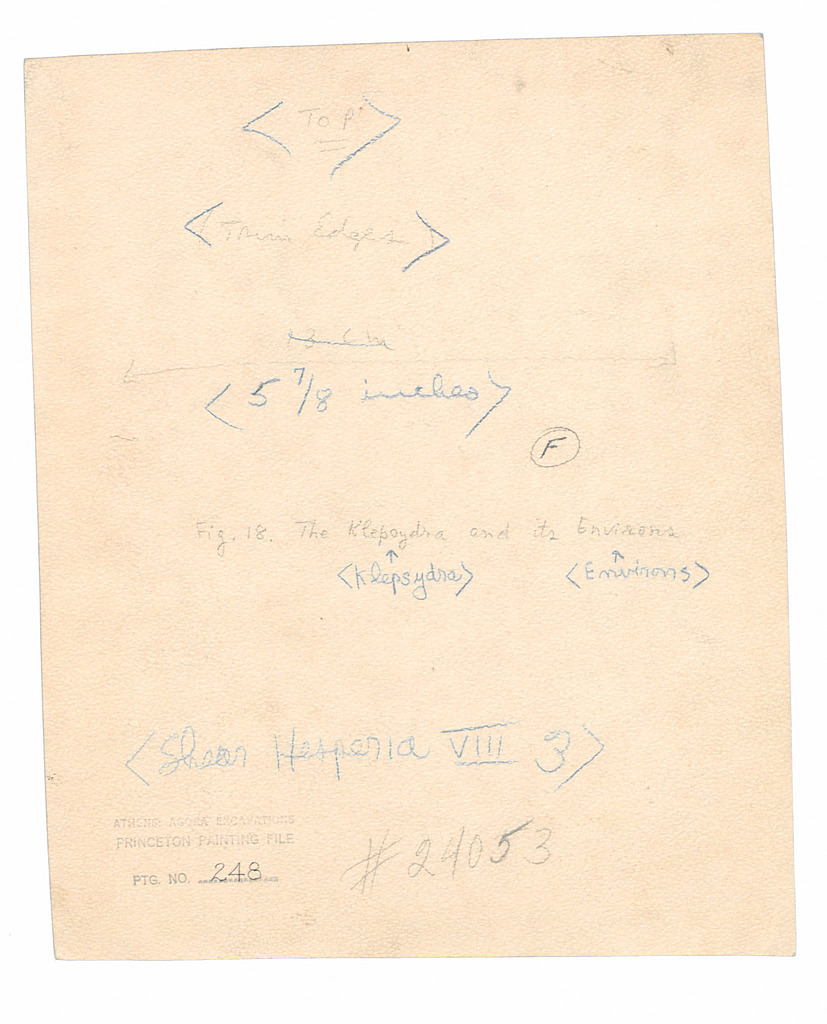 <Top>
<Trim Edges>
13 cm
<5 7/8 inches>
F
Fig. 18. The Klepsydra and its Environs
<Klepsydra> <Environs>
<Shear Hesperia VIII 3>
ATHENS: AGORA EXCAVATIONS
PRINCETON PAINTING FILE
PTG. NO. 248
#24053